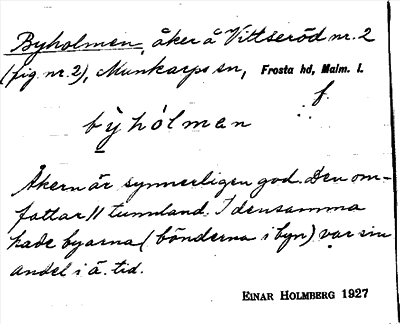 Byholmen, åker å Vittseröd nr. 2
(fig nr. 2), Munkarps sn, Frosta hd, Malm. l.
f.
bỳhólmen
Åkern är synnerligen god. Den om-
fattar 11 tunnland. I densamma
hade byarna (bönderna i byn) var sin
andel i ä. tid.
EINAR HOLMBERG 1927